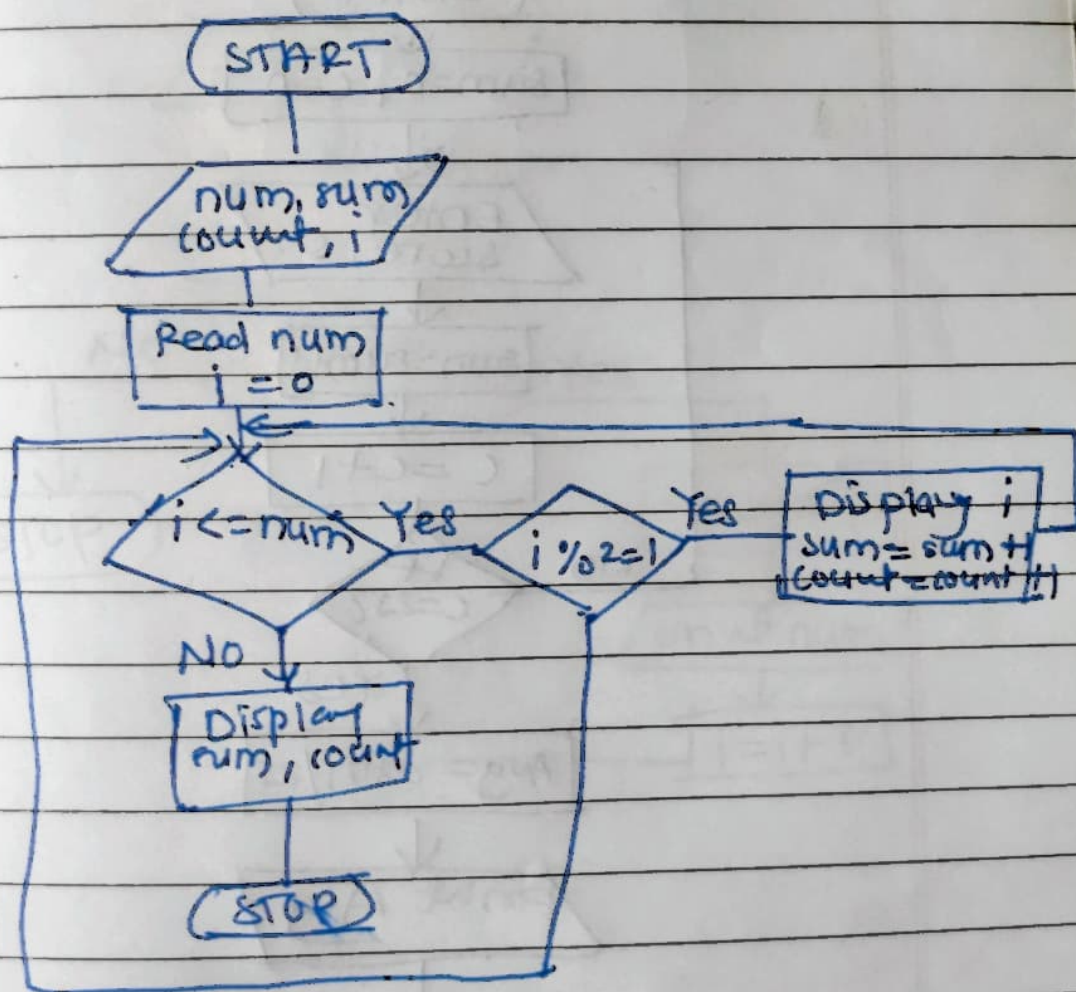 START
num, sum
count, i
Read num
i = 0
i <= num
Yes
i % 2 = 1
Yes
Display i
sum = sum + i
count = count + 1
NO
Display
sum, count
STOP